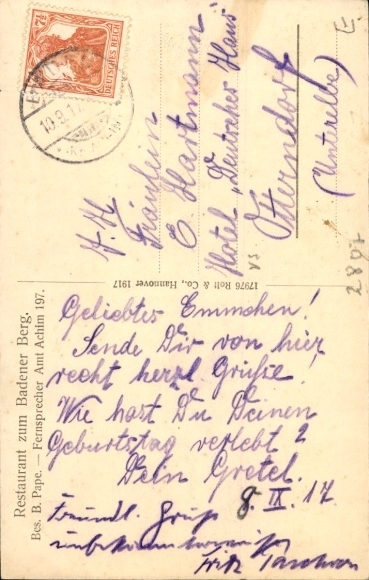 7½
DEUTSCHES REICH
10.9.17
A. H.
Fräulein
E. Hartmann
Hotel „Deutsches Haus“
Otterndorf
(Unterelbe)
2897
17976 Rolf & Co., Hannover 1917
Restaurant zum Badener Berg,
Bes. B. Pape. — Fernsprecher Amt Achim 197.
Geliebtes Emmchen!
Sende Dir von hier
recht herzl Grüße!
Wie hast Du Deinen
Geburtstag verlebt?
Dein Gretel.
8. IX. 17
Freundl. Gruß
unbekannterweise
Fritz